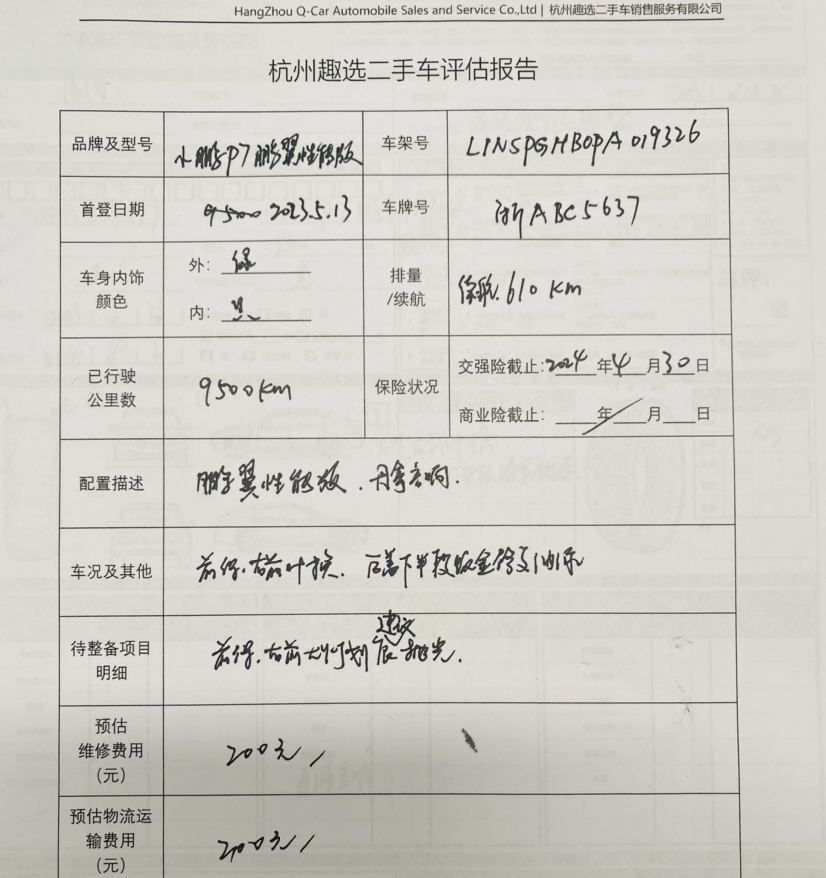 HangZhou Q-Car Automobile Sales and Service Co.,Ltd | 杭州趣选二手车销售服务有限公司
杭州趣选二手车评估报告
品牌及型号 小鹏P7鹏翼性能版 车架号 L1NSPGHB0PA019326
首登日期 2023.5.13 车牌号 浙ABC5637
车身内饰
颜色
外: 绿
内: 黑
排量
/续航
续航.610 Km
已行驶
公里数
9500Km
保险状况
交强险截止:2024年4月30日
商业险截止: 年 月 日
配置描述 鹏翼性能版.丹拿音响.
车况及其他 前保.右前叶换、后盖下半段钣金修复油漆
待整备项目
明细
前保.右前 划 建议 抛光.
预估
维修费用
(元)
200元
预估物流运
输费用
(元)
2000元